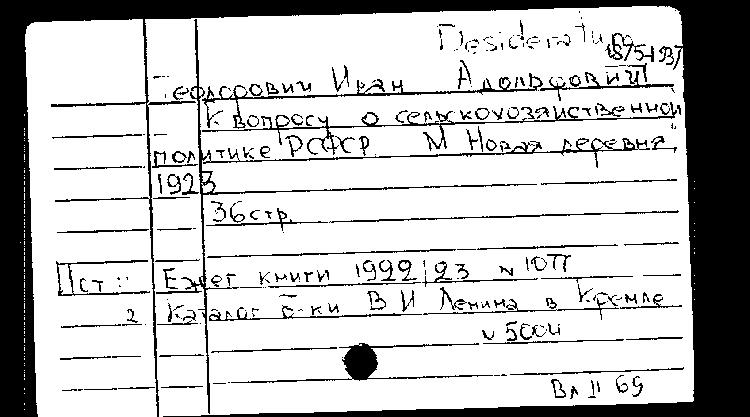 Desideratum
1875-1937
Теодорович Иван Адольфович
К вопросу о сельскохозяйственной
политике РСФСР М "Новая деревня",
1923
36 стр.
Ист: Ежег книги 1922/23 №
2 Каталог б-ки В И Ленина в Кремле
№
Вл II 69